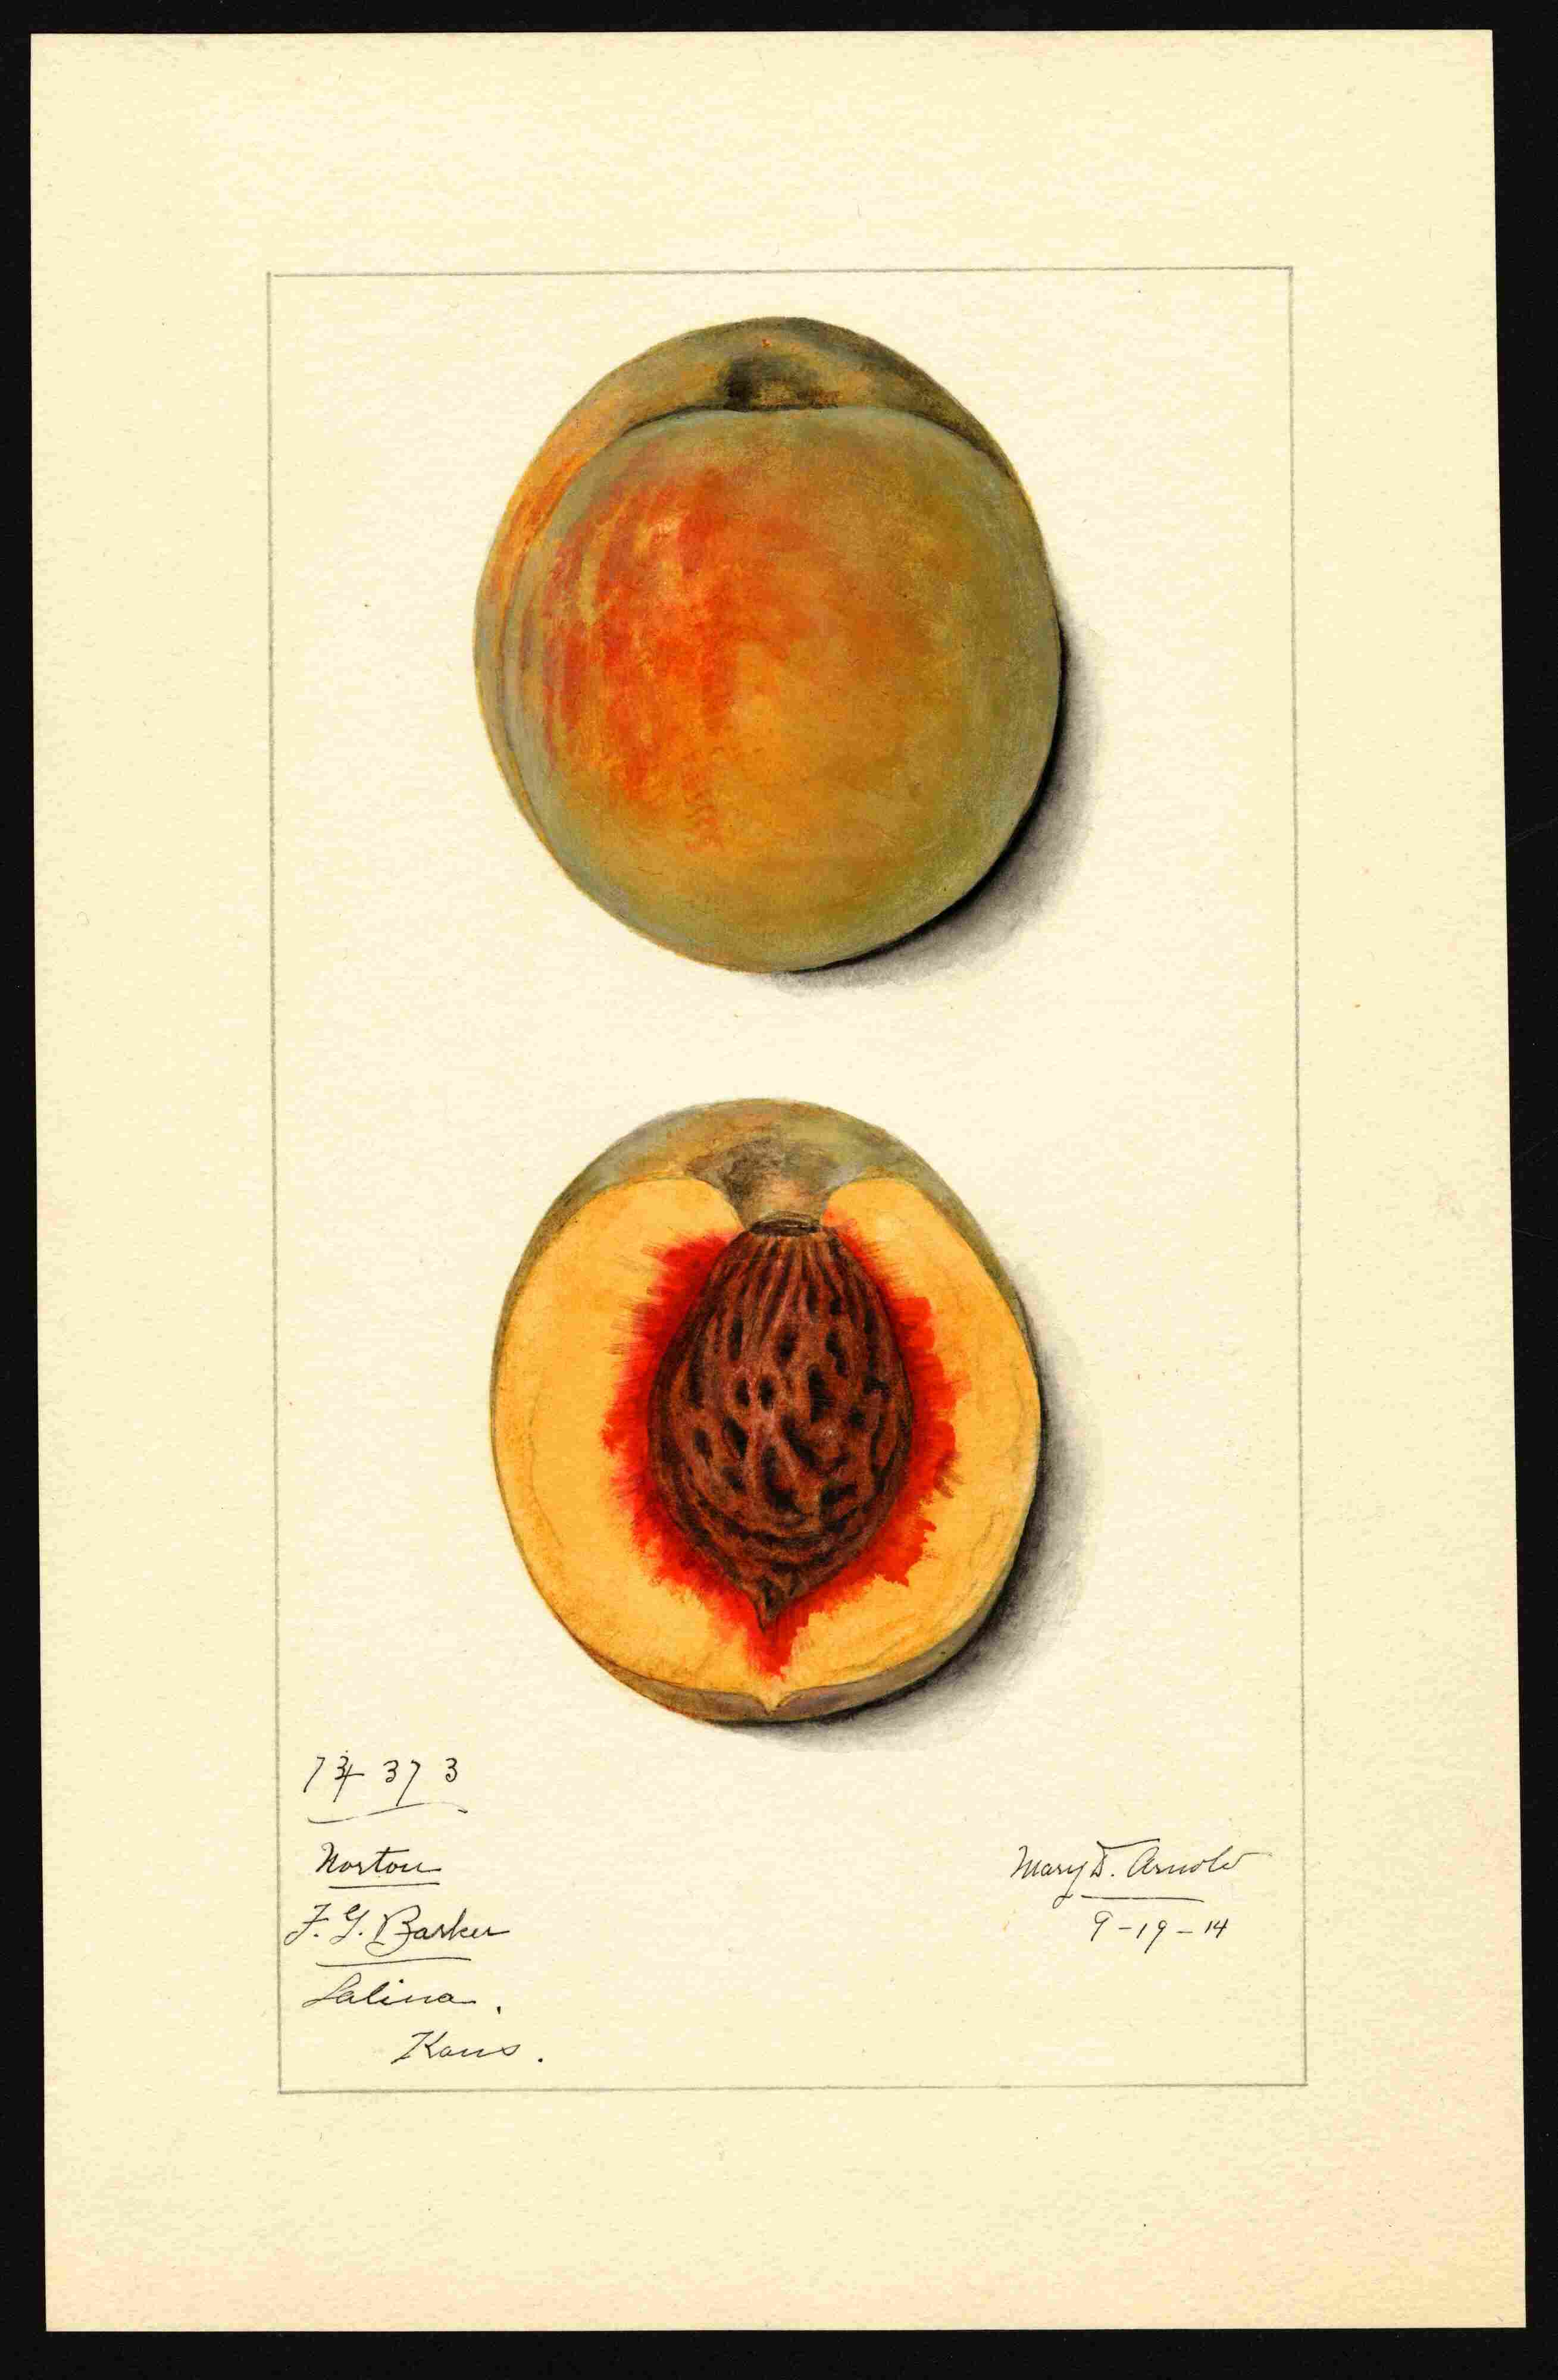 Norton
F. G. Barker
Salina.
Kans.
Mary D. Arnold
9-19-14